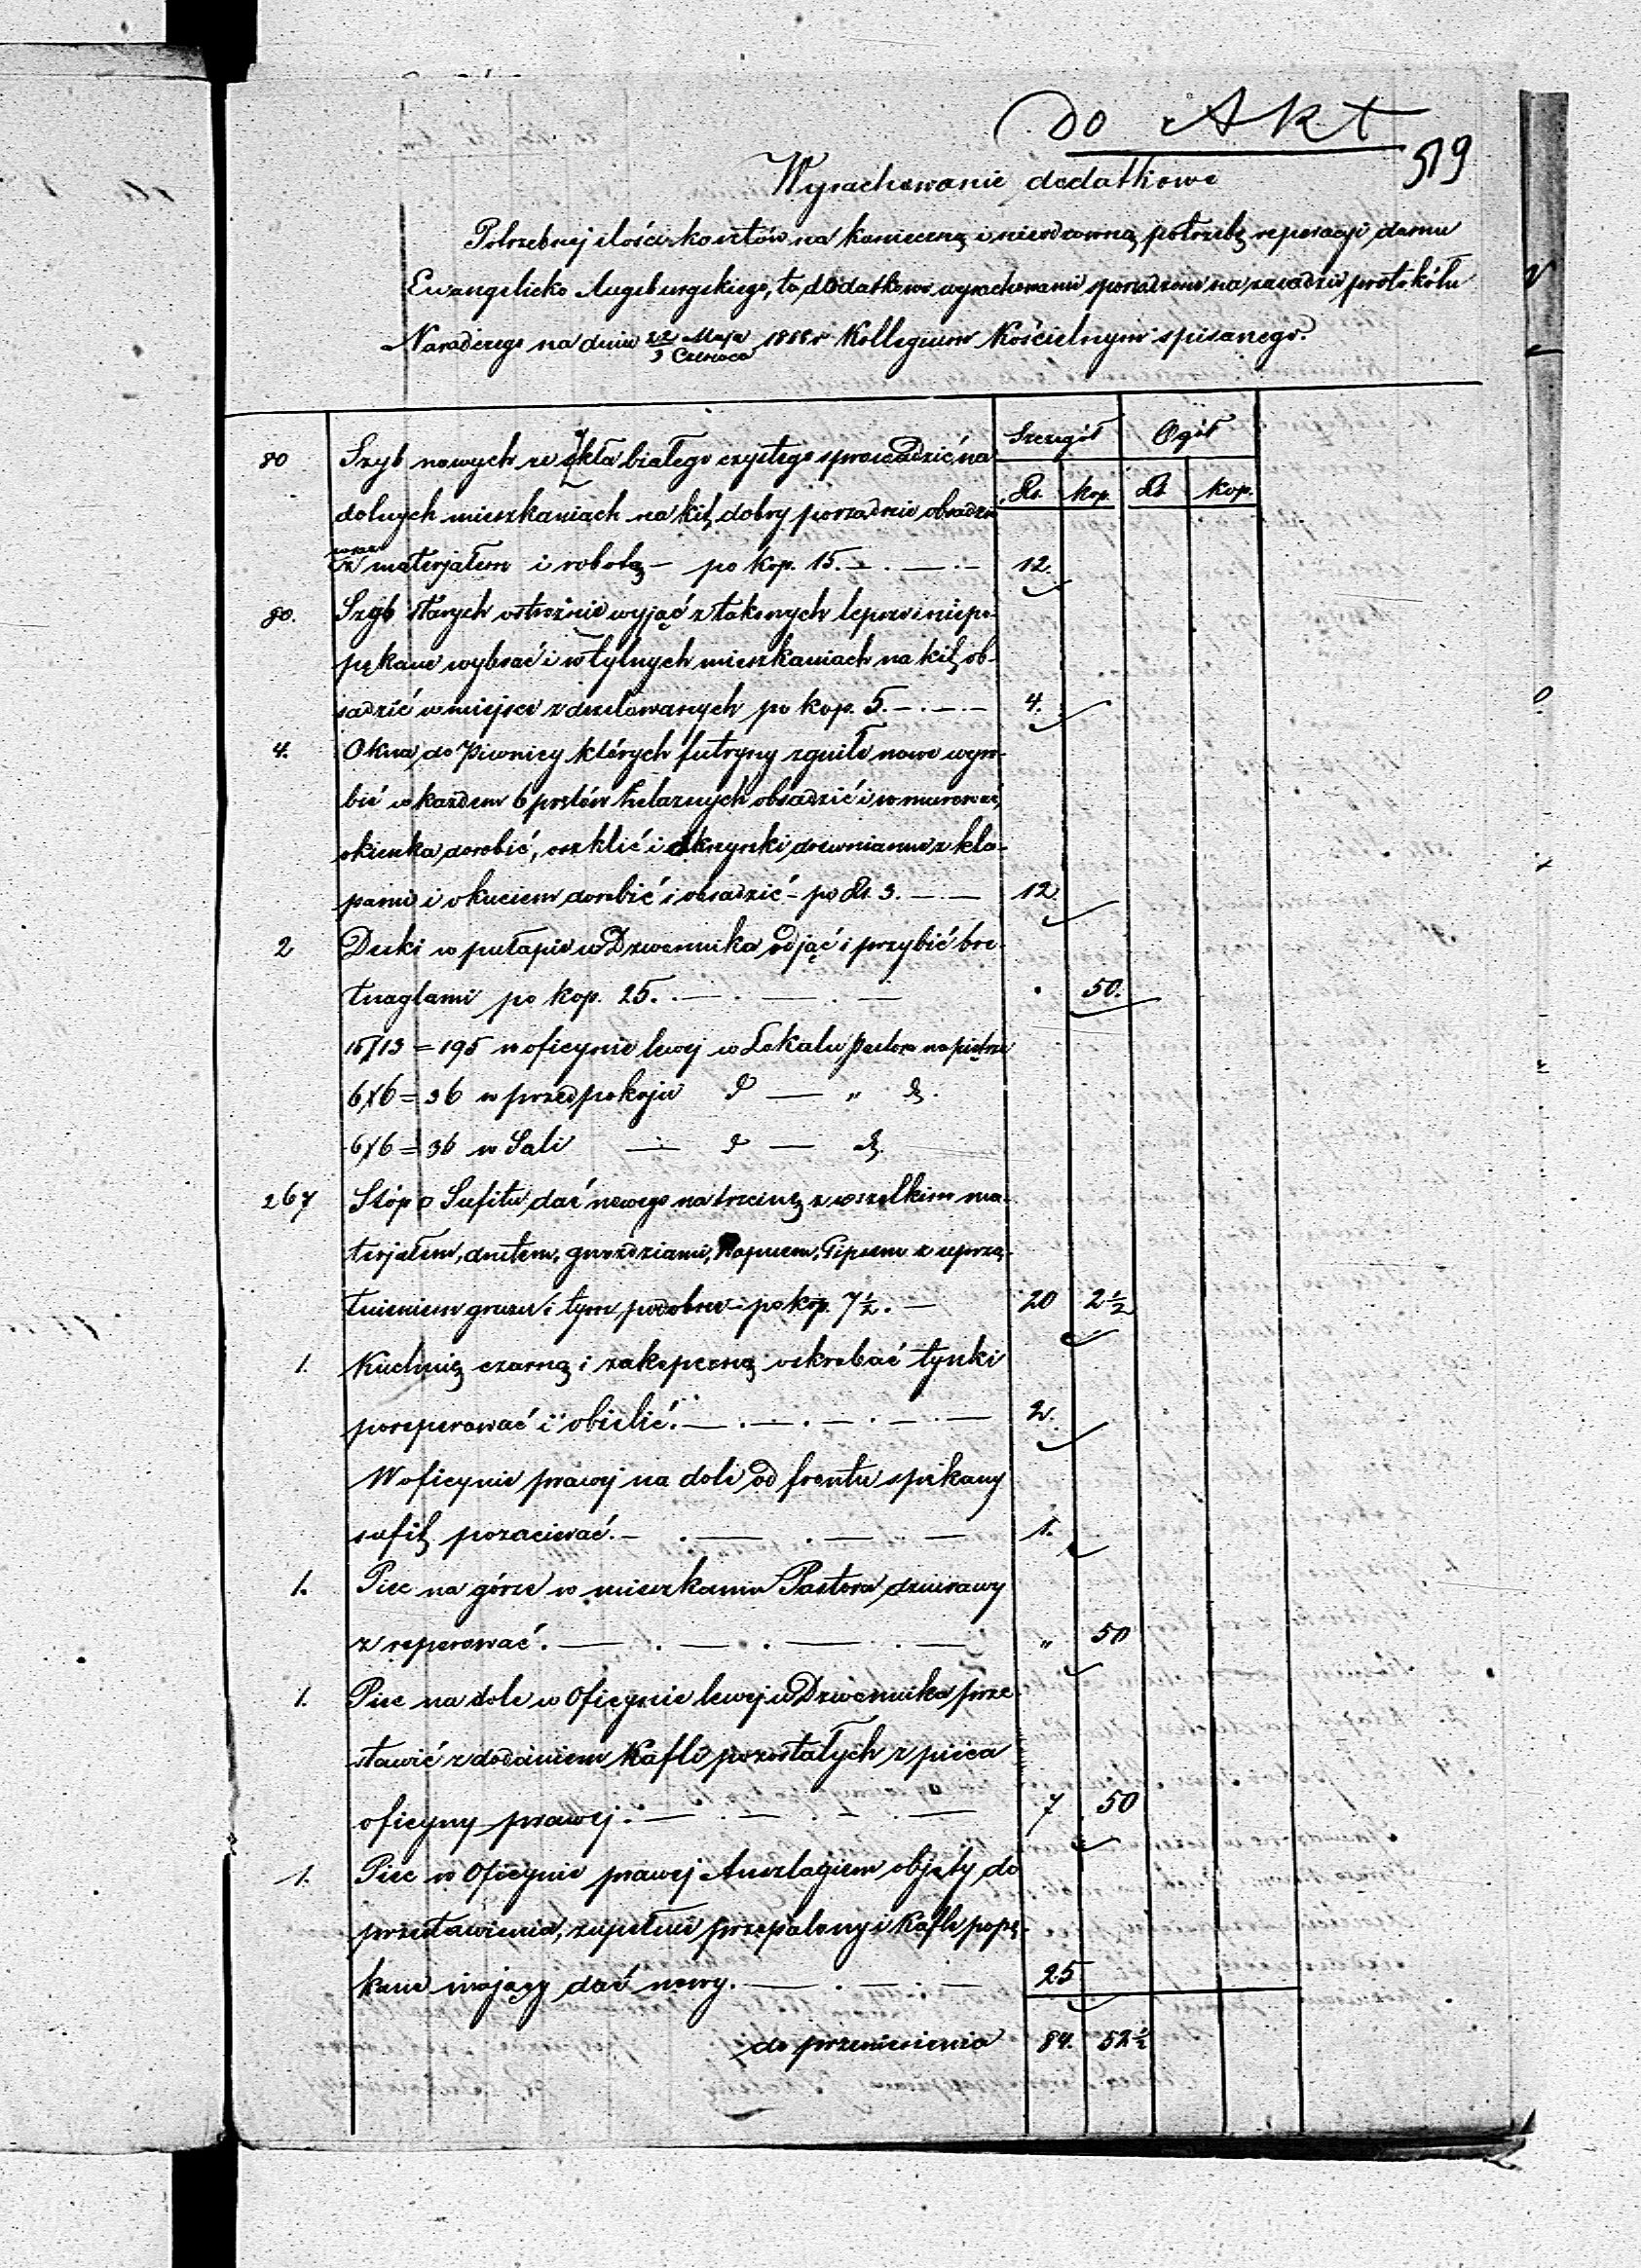 Do Akt
519
Wyrachowanie dodatkowe
Potrzebnej ilości kosztów na konieczną i nieodzowną potrzebę reperacyi domu
Ewangelicko Augsburgskiego, to dodatkowe wyrachowanie sporządzone na zasadzie protokółu
Naradczego na dniu 22 Maja / 3 Czerwca 18 r Kollegium Kościelnym spisanego.
Szczegół Ogół
Rs. kop. Rs kop.
80 Szyb nowych ze szkła białego czystego sprowadzić, na
dolnych mieszkaniach na kit dobry porządnie obsadzić
wraz z materjałem i robotą — po kop. 15. — . — . — 12.
80. Szyb starych ostrożnie wyjąć z takowych lepsze i niepo-
pękane wybrać i w tylnych mieszkaniach na kit ob-
sadzić w miejsce zdezelowanych po kop. 5. — . — . — 4.
4. Okna do Piwnicy których futryny zgniłe nowe wyro-
bić w każdem 6 prętów żelaznych obsadzić i wmurować,
okienka dorobić, oszklić i skrzynki drewniane z kla-
pami i okuciem dorobić i obsadzić — po Rs. 3. — . — 12
2 Deski w pułapie w Dzwonnika odjąć i przybić bre-
tnaglami po kop. 25. . — . — . — . 50.
15/13 = 195 w oficynie lewej w Lokalu Pastora na piętrze
6/6 = 36 w przedpokoju d — „ d.
6/6 = 36 w Sali — d — d.
267 Stóp □ Sufitu dać nowego na trzcinę z wszelkim ma-
terjałem, drutem, gwoździami, Wapnem, Gipsem z uprzą-
tnieniem gruzu i tym podobne — po kop. 7½. — 20 2½
1. Kuchnię czarną i zakopconą oskrobać tynki
poreperować i obielić. — . — . — . — . — 2.
W oficynie prawej na dole od frontu spękany
sufit pozacierać. — . — . — . — 1.
1. Piec na górze w mieszkaniu Pastora dziurawy
zreperować. — . — . — . — „ 50
1. Piec na dole w Oficynie lewej w Dzwonnika prze
stawić z dodaniem Kafli pozostałych z pieca
oficyny prawej. — . — . — . — 7 50
1. Piec w Oficynie prawej Anszlagiem objęty do
przestawienia, zupełnie przepalony i Kafle popę-
kane mający dać nowy. — . — . — 25
do przeniesienia 84. 52½